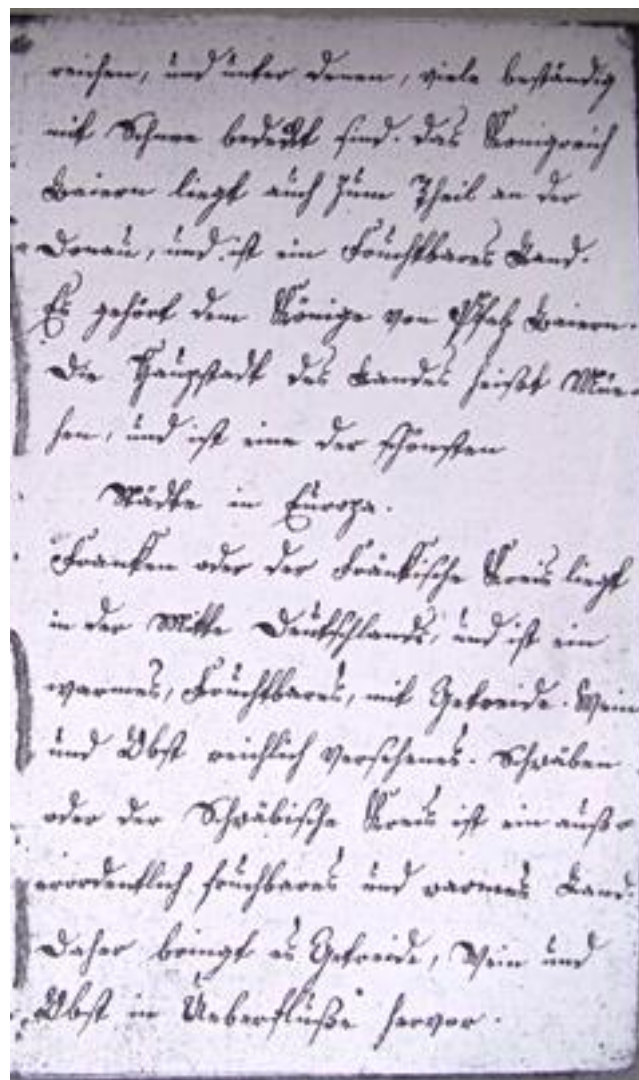 reichen, und unter denen, viele beständig
mit Schnee bedeckt sind. das Konigreich
Baiern liegt auch zum Theil an der
Donau, und ist ein Fruchtbares Land.
Es gehört dem Könige von Pfalz Baiern.
Die Hauptstadt des Landes heißt Mün-
hen, und ist eine der schönsten
Städte in Europa.
Franken oder der Fränkische Kreis liegt
in der Mitte Deutschlands, und ist ein
warmes, Fruchtbares, mit Getreide. Wein
und Obst reichlich versehenes. Schwaben
oder der Schwäbische Kreis ist ein auß-
erordentlich fruchbares und warmes Land.
Daher bringt es Getreide, Wein und
Obst in Ueberfluße hervor.